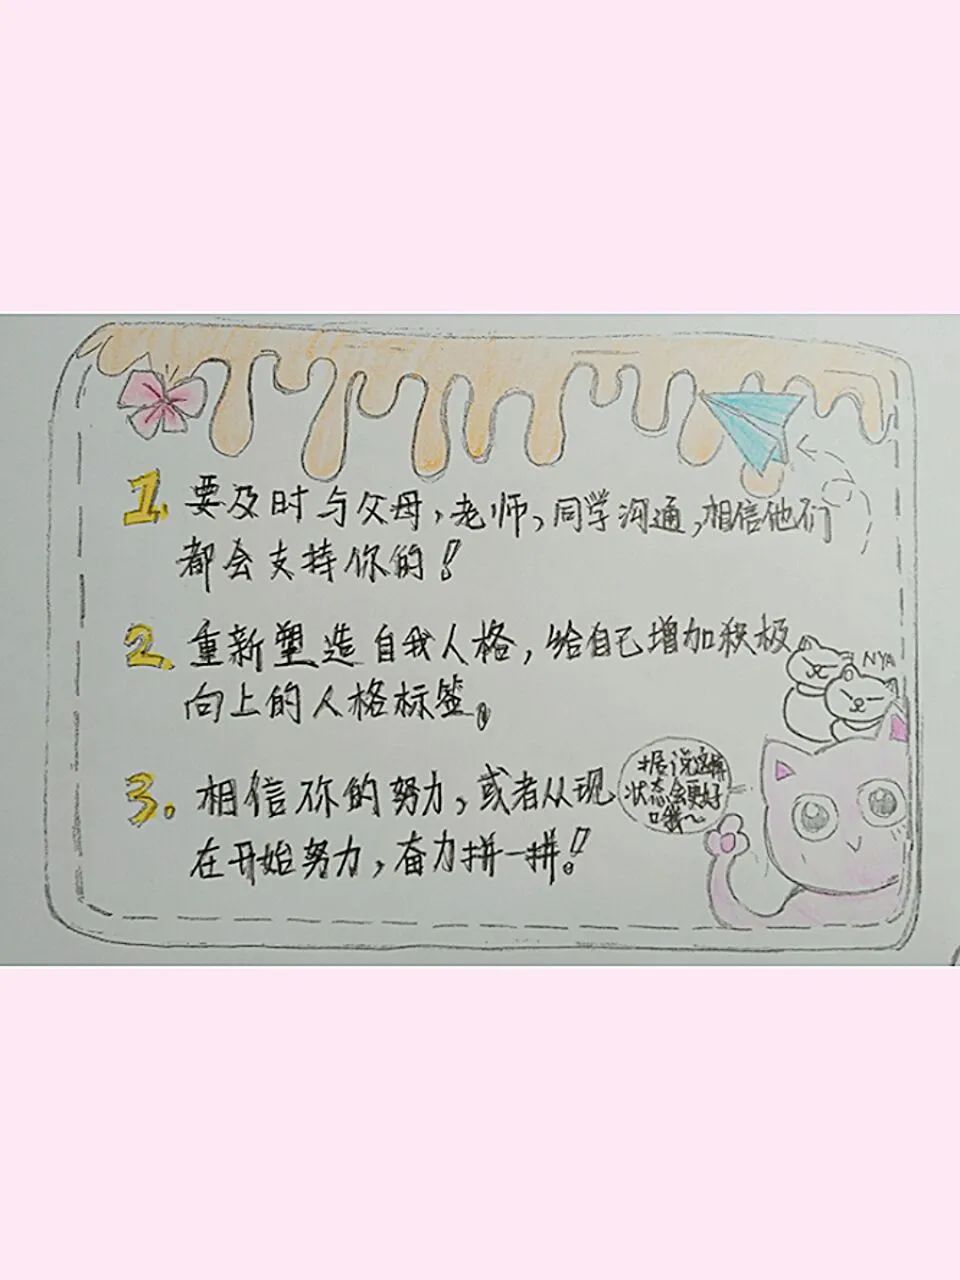 1. 要及时与父母，老师，同学沟通，相信他们
都会支持你的！
2. 重新塑造自我人格，给自己增加积极
向上的人格标签。
NYA
3. 相信你的努力，或者从现
在开始努力，奋力拼一拼！
据说这样
状态会更好
哦～